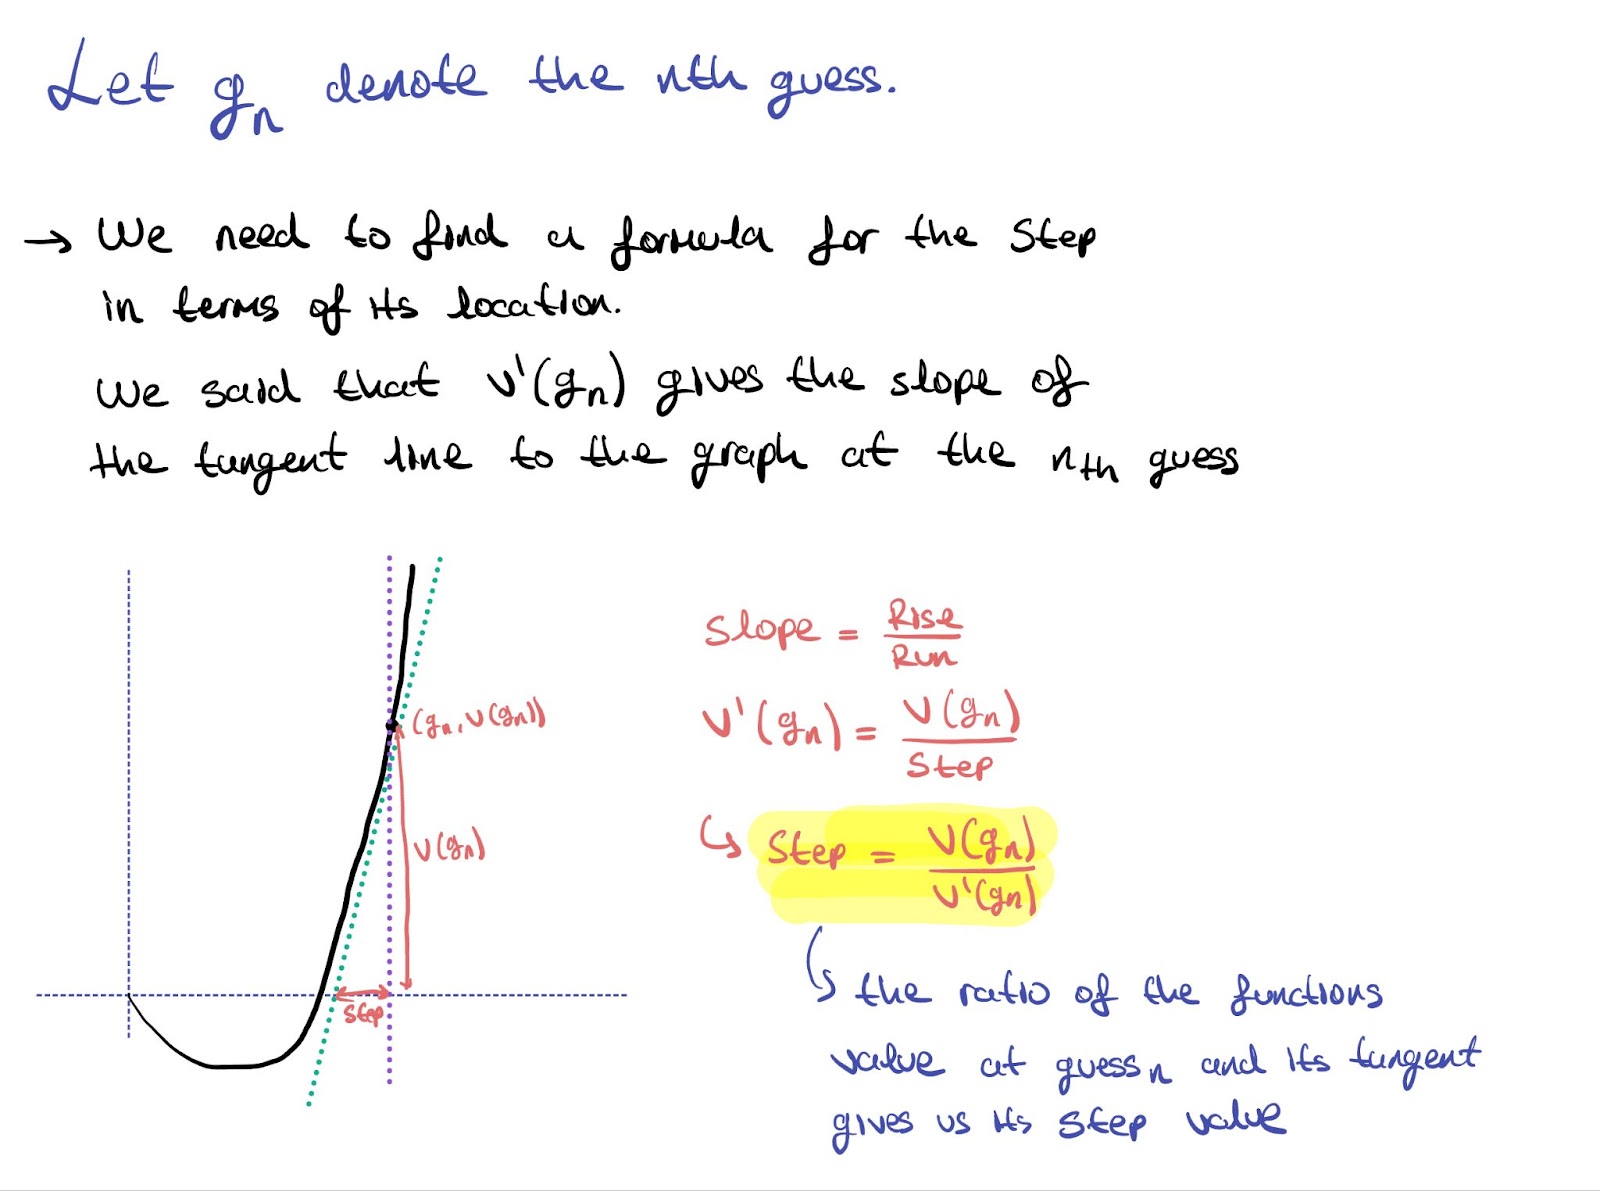 Let gₙ denote the nth guess.
→ We need to find a formula for the step
in terms of its location.
We said that v'(gₙ) gives the slope of
the tangent line to the graph at the nth guess
(gₙ, v(gₙ))
v(gₙ)
step
Slope = Rise / Run
v'(gₙ) = v(gₙ) / step
↳ step = v(gₙ) / v'(gₙ)
↳ the ratio of the functions
value at guessₙ and its tangent
gives us its step value